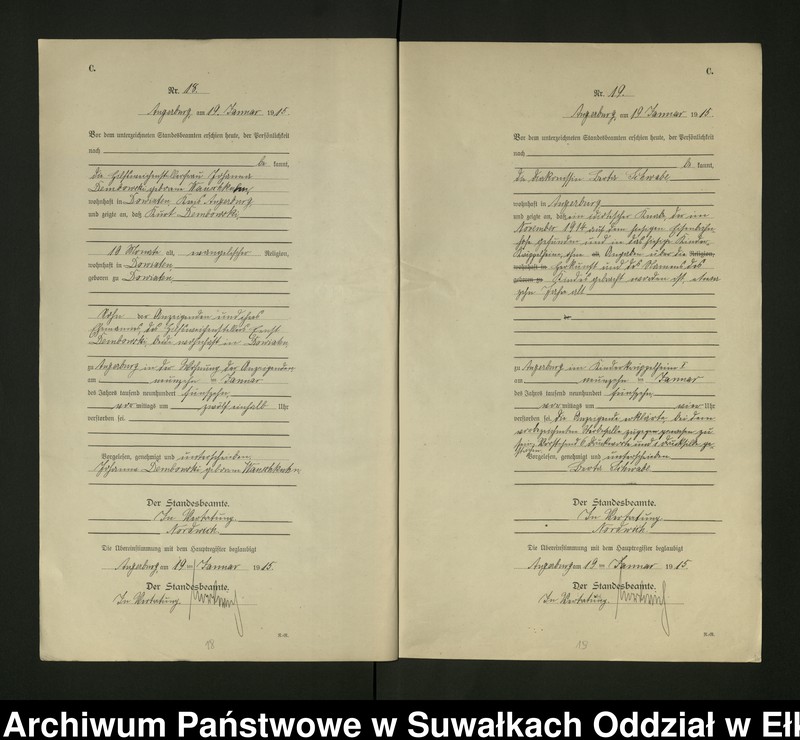 C.
Nr. 18.
Angerburg, am 19. Januar 1915.
Vor dem unterzeichneten Standesbeamten erschien heute, der Persönlichkeit
nach
be kannt,
die Hilfsweichenstellersfrau Johanna
Dembowski geborene
wohnhaft in Dowiaten, Kreis Angerburg
und zeigte an, daß Kurt Dembowski,
10 Monate alt, evangelischer Religion,
wohnhaft in Dowiaten
geboren zu Dowiaten,
Sohn der Anzeigenden und ihres
Ehemannes, des Hilfsweichenstellers Ernst
Dembowski, beide wohnhaft in Dowiaten
zu Angerburg in der Wohnung der Anzeigenden
am neunzehnten Januar
des Jahres tausend neunhundert fünfzehn
vor mittags um zwölf einhalb Uhr
verstorben sei.
Vorgelesen, genehmigt und unterschrieben
Johanna Dembowski geborene
Der Standesbeamte.
In Vertretung
Die Übereinstimmung mit dem Hauptregister beglaubigt
Angerburg am 19ten Januar 1915.
Der Standesbeamte.
In Vertretung.
18
C.
Nr. 19.
Angerburg, am 19 Januar 1915.
Vor dem unterzeichneten Standesbeamten erschien heute, der Persönlichkeit
nach
be kannt,
die Diakonissin Berta Schwabe
wohnhaft in Angerburg
und zeigte an, daß ein deutscher Knabe, der im
November 1914 auf dem hiesigen Eisenbahn-
hofe gefunden und in das hiesige Kinder-
Krüppelheim, ohne alt, Angaben über die Religion,
wohnhaft in Herkunft und des Namens des
geboren zu Kindes gebracht worden ist, etwa
zehn Jahre alt
zu Angerburg im Kinderkrüppelheim
am neunzehnten Januar
des Jahres tausend neunhundert fünfzehn
vor mittags um vier Uhr
verstorben sei. Die Anzeigende erklärte bei dem
vorbezeichneten Sterbefalle zugegen gewesen zu
sein. Vorstehend 6 Druckworte und 1 Drucksilbe ge-
strichen.
Vorgelesen, genehmigt und unterschrieben
Berta Schwabe
Der Standesbeamte.
In Vertretung
Die Übereinstimmung mit dem Hauptregister beglaubigt
Angerburg am 19ten Januar 1915.
Der Standesbeamte.
In Vertretung.
19
Archiwum Państwowe w Suwałkach Oddział w Ełk